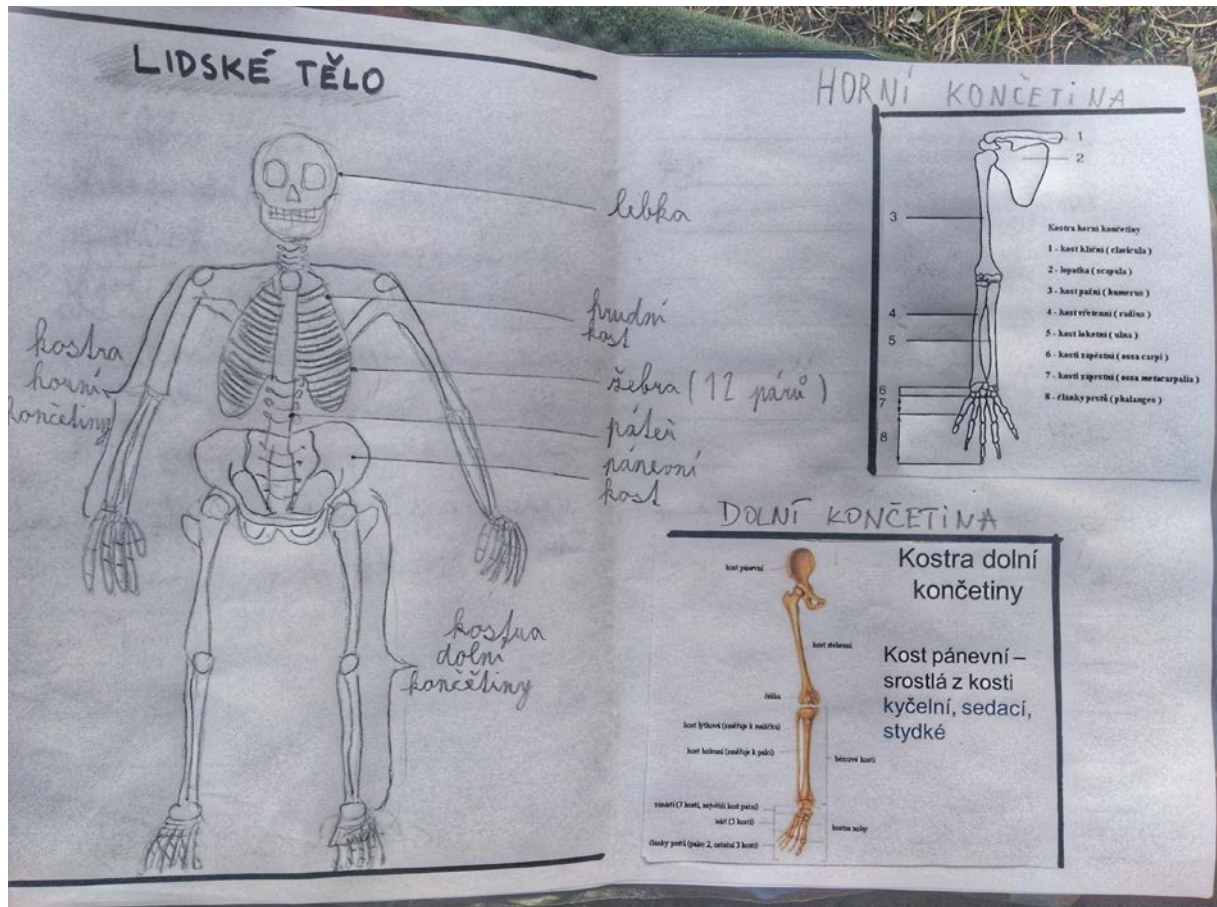 LIDSKÉ TĚLO
lebka
hrudní
kost
žebra (12 párů)
páteř
pánevní
kost
kostra
horní
končetiny
kostra
dolní
končetiny
HORNÍ KONČETINA
1
2
3
4
5
6
7
8
Kostra horní končetiny
1 - kost klíční ( clavicula )
2 - lopatka ( scapula )
3 - kost pažní ( humerus )
4 - kost vřetenní ( radius )
5 - kost loketní ( ulna )
6 - kosti zápěstní ( ossa carpi )
7 - kosti záprstní ( ossa metacarpalia )
8 - články prstů ( phalanges )
DOLNÍ KONČETINA
Kostra dolní
končetiny
Kost pánevní –
srostlá z kosti
kyčelní, sedací,
stydké
kost pánevní
kost stehenní
čéška
kost lýtková (směřuje k malíčku)
kost holenní (směřuje k palci)
bércové kosti
zánártí (7 kostí, největší kost patní)
nárt (5 kostí)
kostra nohy
články prstů (palec 2, ostatní 3 kosti)